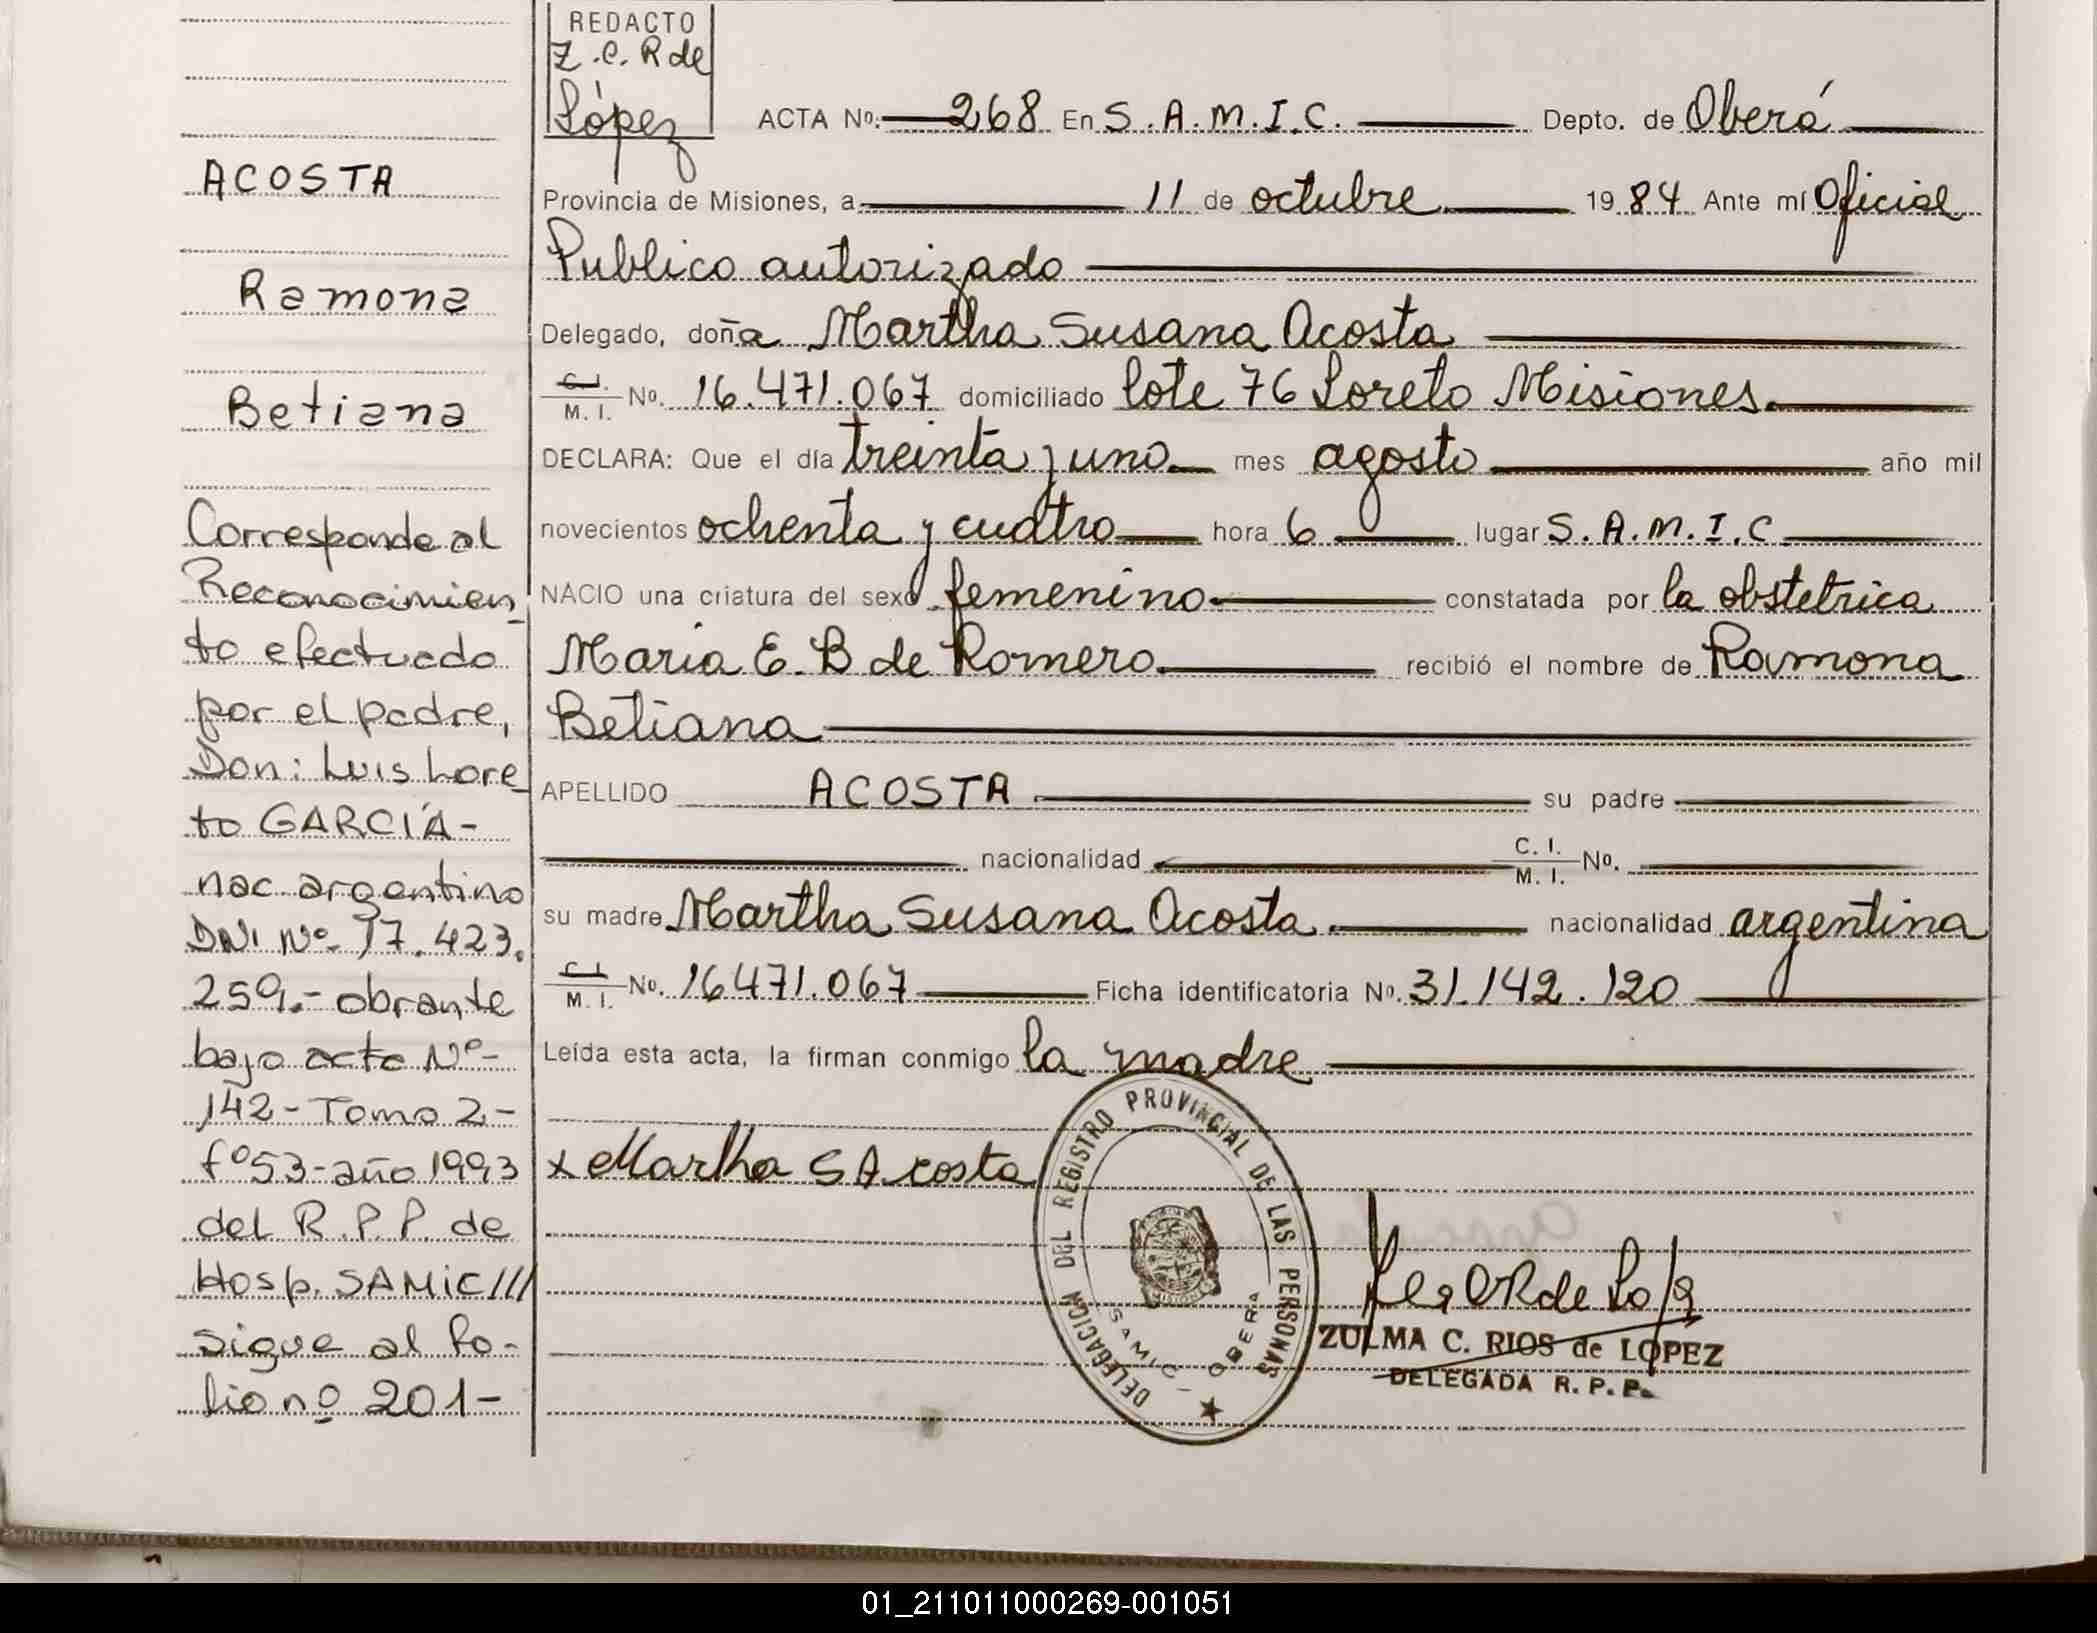 REDACTO
Z.C.R de
López
ACTA Nº. 268 En S.A.M.I.C. Depto. de Oberá
Provincia de Misiones, a 11 de octubre 19 84 Ante mí Oficial
Publico autorizado
Delegado, doña Martha Susana Acosta
C.I. M. I. Nº. 16.471.067 domiciliado lote 76 Loreto Misiones.
DECLARA: Que el día treinta y uno mes agosto año mil
novecientos ochenta y cuatro hora 6 lugar S.A.M.I.C.
NACIO una criatura del sexo femenino constatada por la obstetrica
Maria E. B de Romero recibió el nombre de Ramona
Betiana
APELLIDO ACOSTA su padre
nacionalidad C. I. M. I. Nº.
su madre Martha Susana Acosta nacionalidad argentina
C.I. M. I. Nº. 16471.067 Ficha identificatoria Nº. 31.142.120
Leída esta acta, la firman conmigo la madre
x Martha S Acosta
DELEGACION DEL REGISTRO PROVINCIAL DE LAS PERSONAS
MISIONES
SAMIC - OBERA
ZULMA C. RIOS de LOPEZ
DELEGADA R. P. P.
ACOSTA
Ramona
Betiana
Corresponde al
Reconocimien
to efectuado
por el padre,
Don: Luis Lore
to GARCÍA-
nac argentino
DNI Nº 17.423.
259.- obrante
bajo acta Nº-
142-Tomo 2-
fº53-año 1993
del R.P.P. de
Hosp. SAMIC///
sigue al fo-
lio nº 201-
01_211011000269-001051